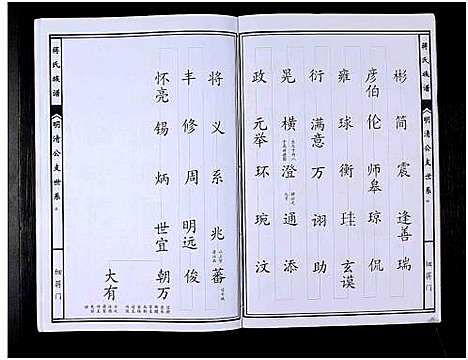 蒋氏族谱
明清公支世系
细蒋门
彬 简 震 逢善 瑞
彦伯 伦 师皋 琼 侃
雍 球 衡 珪 玄谟
衍 满意 万 诩 助
晃 横 澄 通 添
政 元举 环 琬 汶
将 义 系 兆 蕃
丰 修 周 明远 俊
怀亮 锡 炳 世宜 朝万
大有
蒋氏族谱
明清公支世系
细蒋门